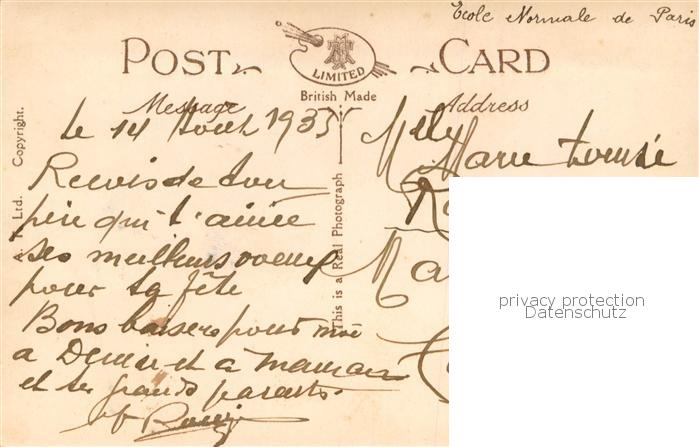 Ecole Normale de Paris
POST CARD
LIMITED
British Made
Message
Address
le 14 Aout 1935
Recois de ton
père qui t'aime
ses meilleurs voeux
pour ta fête
Bons baisers pour moi
a Denise et à maman
et tes grands parents
Melle
Marie Louise
Ma
This is a Real Photograph
Ltd. Copyright.
privacy protection
Datenschutz